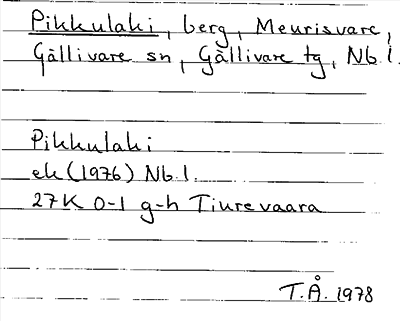 Pikkulaki, berg, Meurisvare,
Gällivare sn, Gällivare tg, Nb.l.
Pikkulaki
ek (1976) Nb.l.
27K 0-1 g-h Tiurevaara
T.Å. 1978